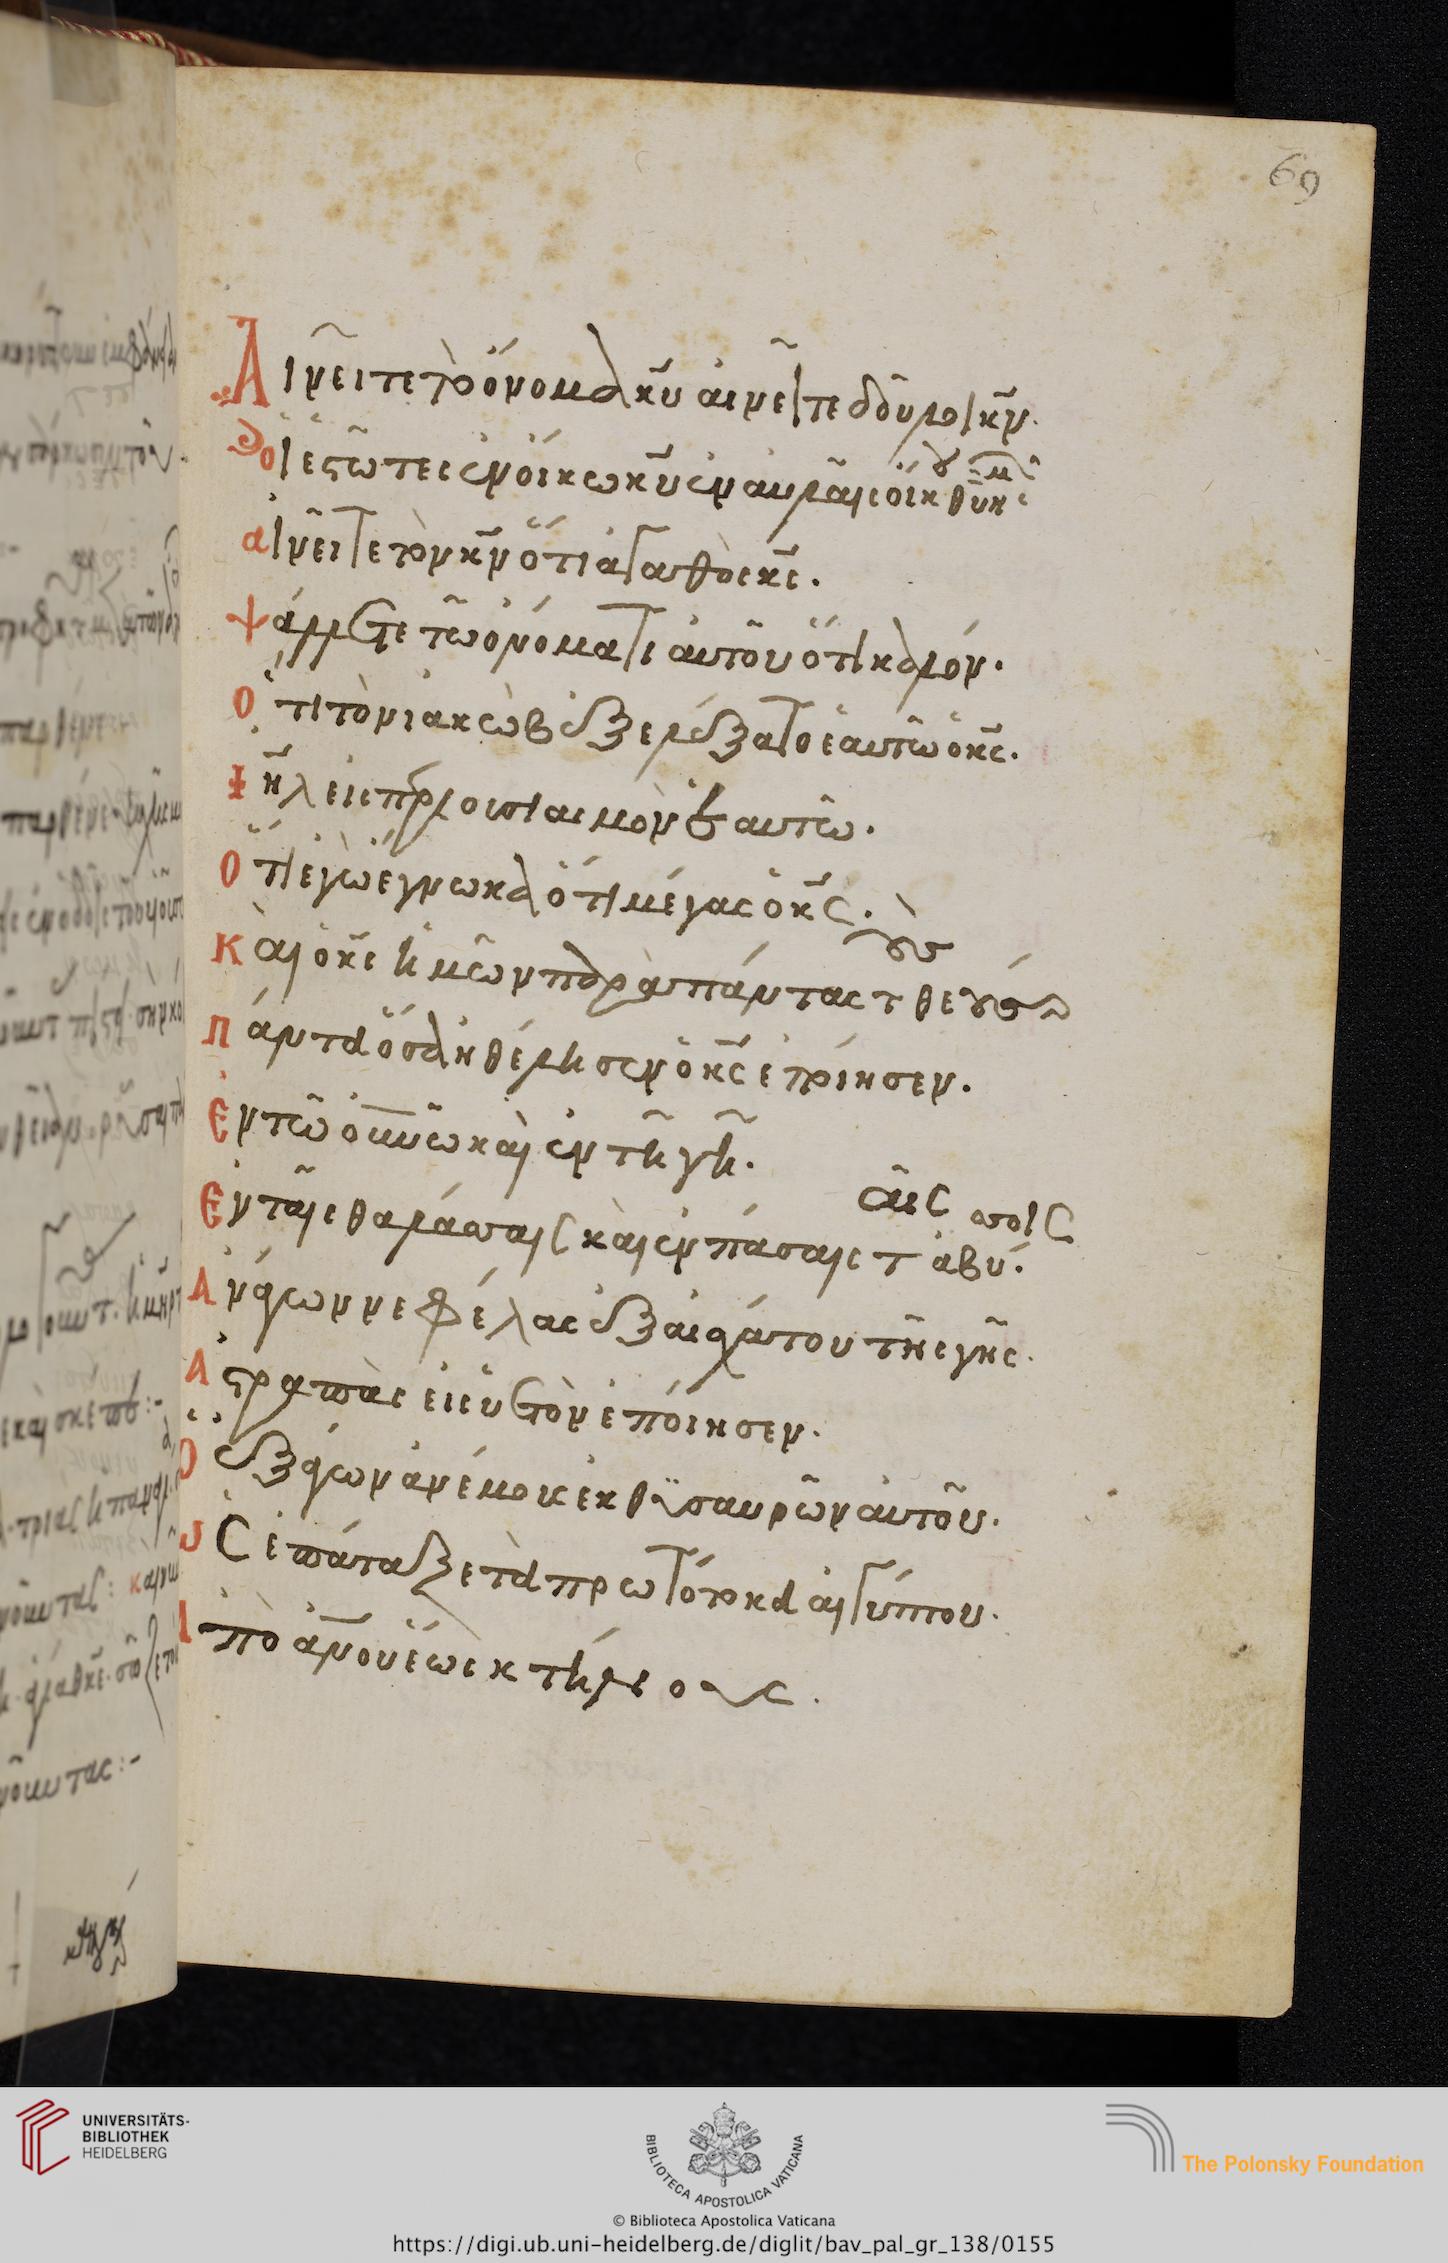 69
Αἰνεῖτε τὸ ὄνομα κυ αἰνεῖτε δοῦλοι κν.
οἱ ἑστῶτες ἐν οἴκω κυ ἐν αὐλαῖς οἴκου θυ ἡμῶν
αἰνεῖτε τὸν κν ὅτι ἀγαθὸς κς.
ψάλλατε τῶ ὀνόματι αὐτοῦ ὅτι καλόν.
Ὅτι τὸν ἰακὼβ ἐξελέξατο ἑαυτῶ ὁ κς.
ιηλ εἰς περιουσιασμὸν ἑαυτῶ.
Ὅτι ἐγὼ ἔγνωκα ὅτι μέγας ὁ κς.
Καὶ ὁ κς ἡμῶν παρὰ πάντας τοὺς θεούς
Πάντα ὅσα ἠθέλησεν ὁ κς ἐποίησεν.
Ἐν τῶ οὐνῶ καὶ ἐν τῆ γῆ.
Ἐν ταῖς θαλάσσαις καὶ ἐν πάσαις ταῖς ἀβύσσοις
Ἀνάγων νεφέλας ἐξ ἐσχάτου τῆς γῆς.
Ἀστραπὰς εἰς ὑετὸν ἐποίησεν.
Ὁ ἐξάγων ἀνέμους ἐκ θησαυρῶν αὐτοῦ.
ὃς ἐπάταξε τὰ πρωτότοκα αἰγύπτου.
Ἀπὸ ἀνου ἕως κτήνους.
UNIVERSITÄTS-
BIBLIOTHEK
HEIDELBERG
BIBLIOTECA APOSTOLICA VATICANA
© Biblioteca Apostolica Vaticana
The Polonsky Foundation
https://digi.ub.uni-heidelberg.de/diglit/bav_pal_gr_138/0155